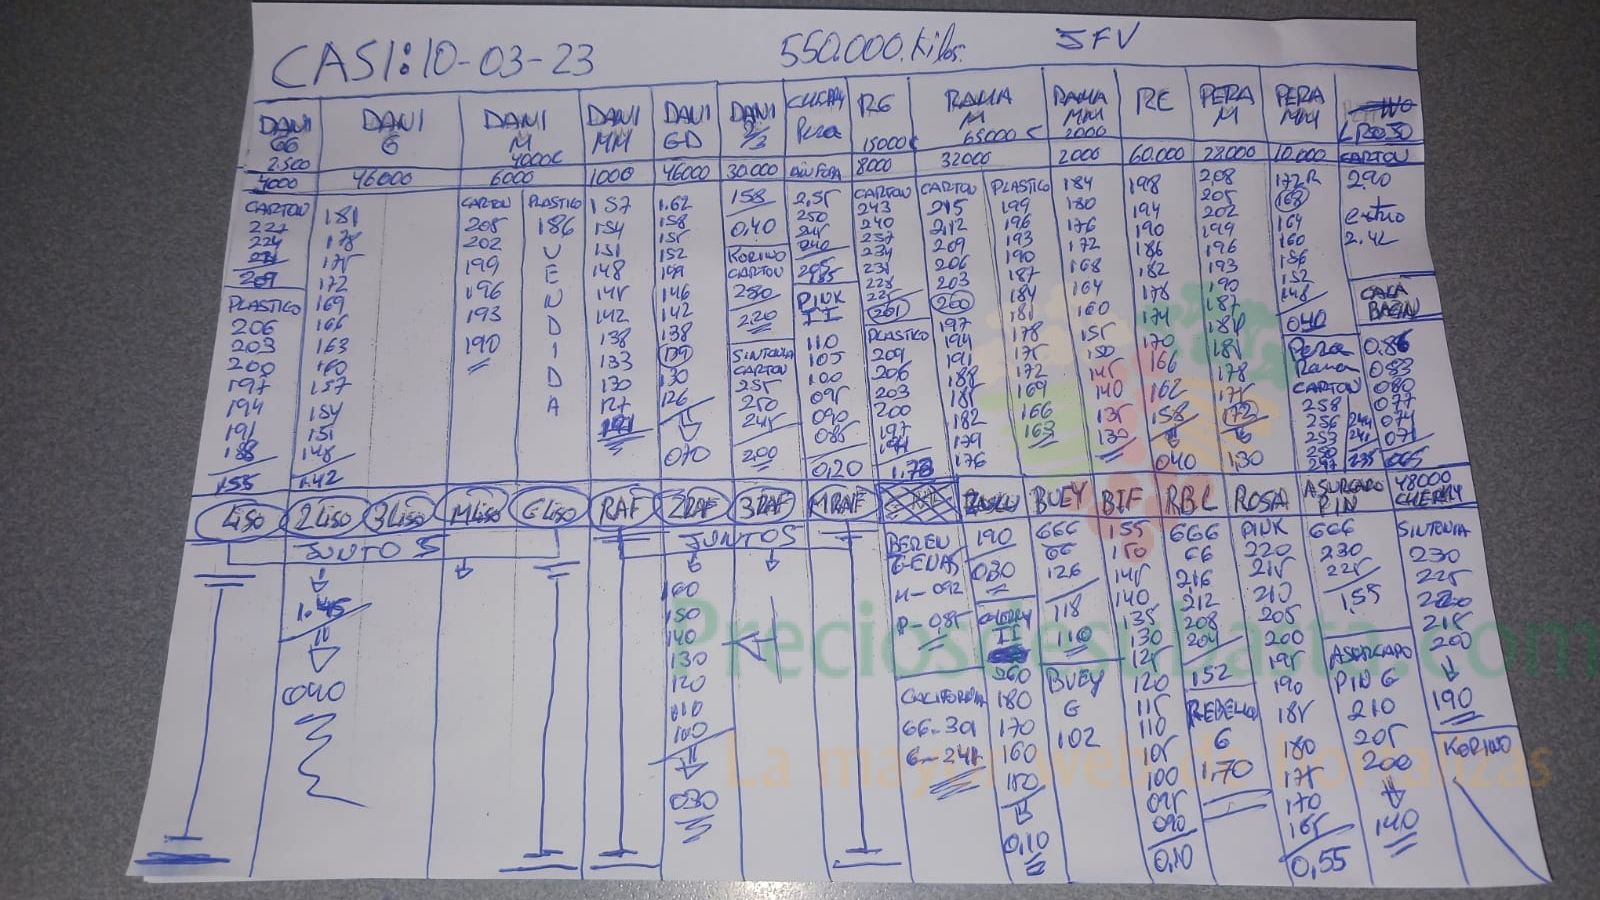 CASI: 10-03-23 550.000.Kilos. JFV
DANI GG 2.500
DANI G
DANI M 4000C
DANI MM
DANI GD
DANI 2/3
CHERRY Pera
RG 15000C
RAMA M 65000C
RAMA MM 2000
RE
PERA M
PERA MM
CARTON
4000 46000 6000 1000 46000 30.000 8000 32000 2000 60.000 28000 10.000
CARTON
227
224
209
PLASTICO
206
203
200
197
194
191
188
155
181
178
175
172
169
166
163
160
157
154
151
148
1.42
CARTON
205
202
199
196
193
190
PLASTICO
186
V
E
N
D
I
D
A
157
154
151
148
145
142
138
133
130
127
1.62
158
155
152
149
146
142
138
130
126
070
158
0,40
KORINO
CARTON
280
220
SINTONIA
CARTON
255
250
245
200
2,55
250
245
240
PINK
II
110
105
100
095
090
085
0,20
CARTON
243
240
237
234
231
228
225
(261)
PLASTICO
209
206
203
200
197
194
1.78
CARTON
215
2,12
209
206
203
(260)
197
194
191
188
185
182
179
176
PLASTICO
199
196
193
190
187
184
181
178
175
172
169
166
163
184
180
176
172
168
164
160
155
150
145
140
135
130
198
194
190
186
182
178
174
170
166
162
158
040
208
205
202
199
196
193
190
187
184
181
178
175
172
130
172R
(168)
164
160
156
152
148
040
Pera
Rama
CARTON
258
256
253
250
247
244
241
235
290
2.42
0.86
083
080
077
074
071
065
Liso 2Liso 3Liso MLiso GLiso RAF 2RAF 3RAF MRAF BUEY BIF RBL ROSA ASURCADO PIN 48000 CHERRY
JUNTOS JUNTOS
1.45
040
160
150
140
130
120
110
100
030
BEREN
GENAS
H- 092
P- 085
CALIFORNIA
GG-301
G-241
190
030
CHERRY
II
180
170
160
150
0,10
GGG
GG
126
118
110
BUEY
G
102
155
150
145
140
135
130
125
120
115
110
105
100
095
090
0,10
GGG
GG
216
212
208
204
152
REBELLO
G
1,70
PINK
220
215
210
205
200
195
190
185
180
175
170
165
0,55
GGG
230
225
1.55
ASURCADO
PIN G
210
205
200
140
SINTONIA
230
225
220
215
200
190
KORINO